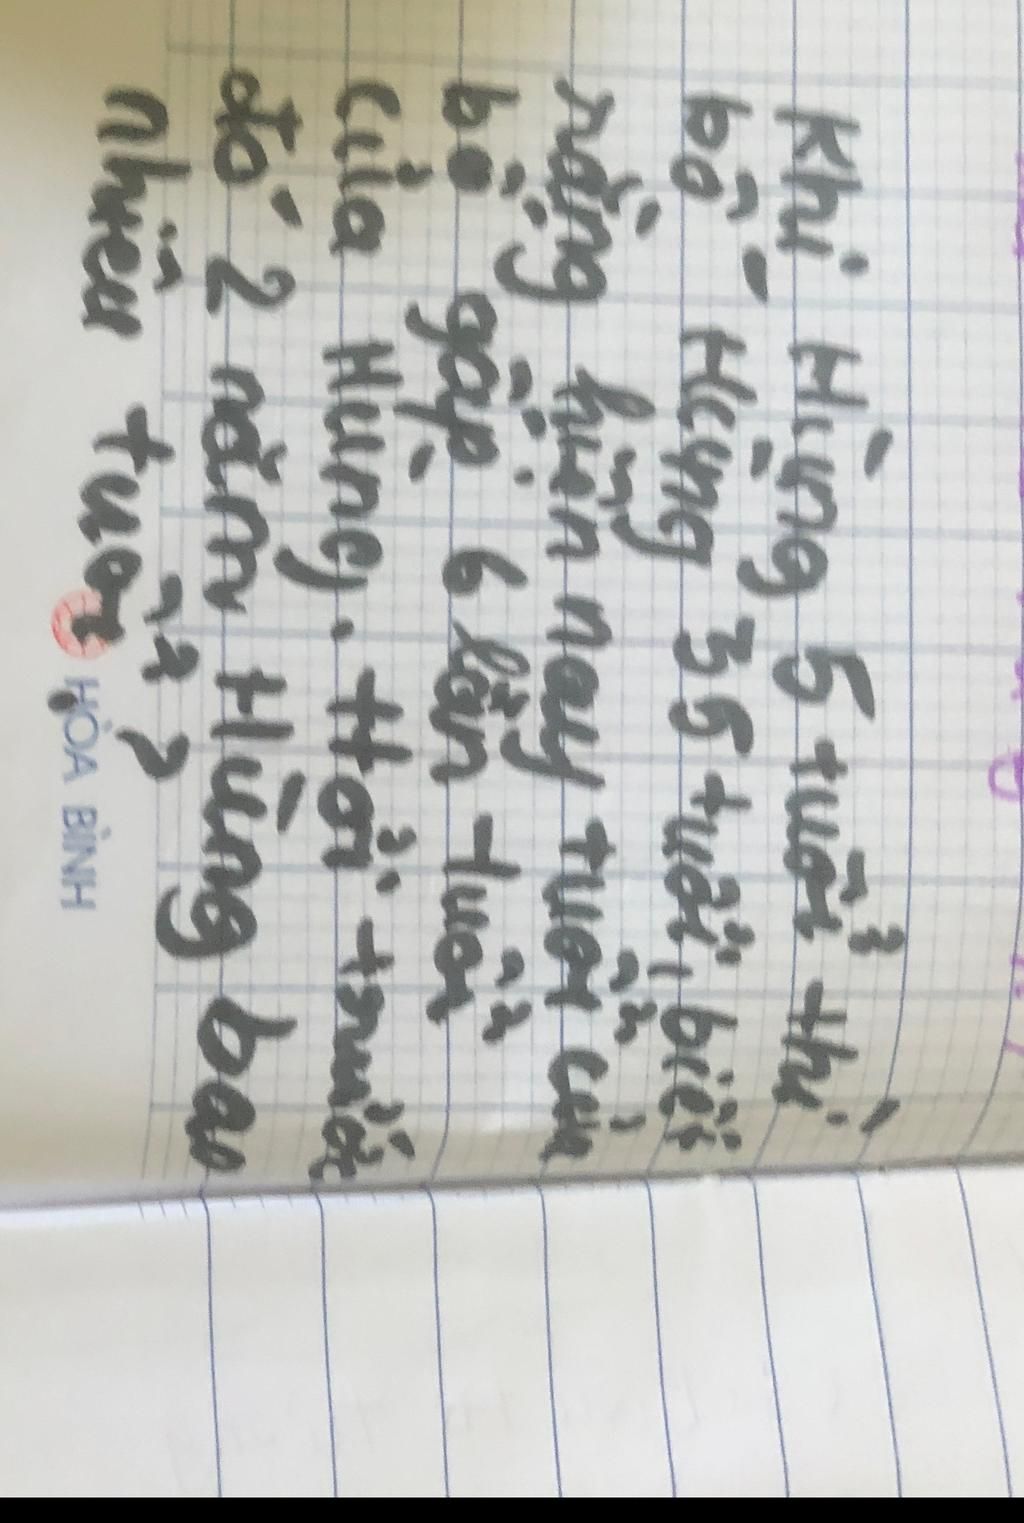 Khi Hùng 5 tuổi thì
bố Hùng 35 tuổi, biết
rằng hiện nay tuổi của
bố gấp 6 lần tuổi
của Hùng. Hỏi trước
đó 2 năm Hùng bao
nhiêu tuổi?
HÒA BÌNH